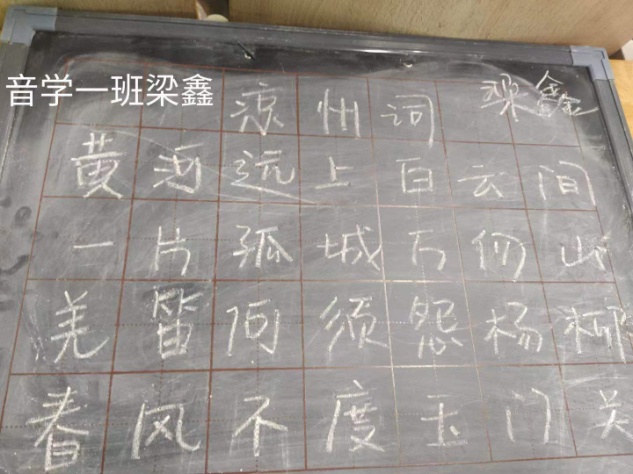 音学一班梁鑫
凉州词 梁鑫
黄河远上白云间
一片孤城万仞山
羌笛何须怨杨柳
春风不度玉门关